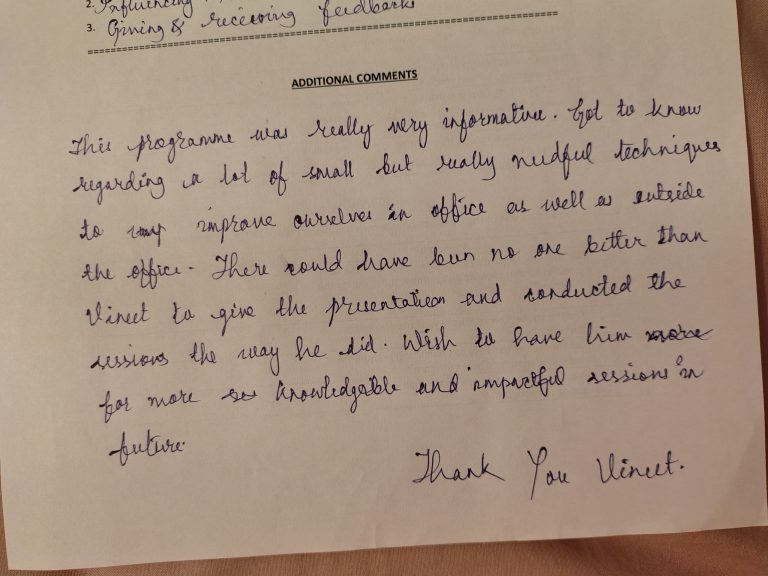 2. Influencing
3. Giving & receiving feedback
ADDITIONAL COMMENTS
This programme was really very informative. Got to know
regarding a lot of small but really needful techniques
to improve ourselves in office as well as outside
the office. There could have been no one better than
Vineet to give the presentation and conducted the
sessions the way he did. Wish to have him more
for more knowledgeble and impactful sessions in
future.
Thank You Vineet.